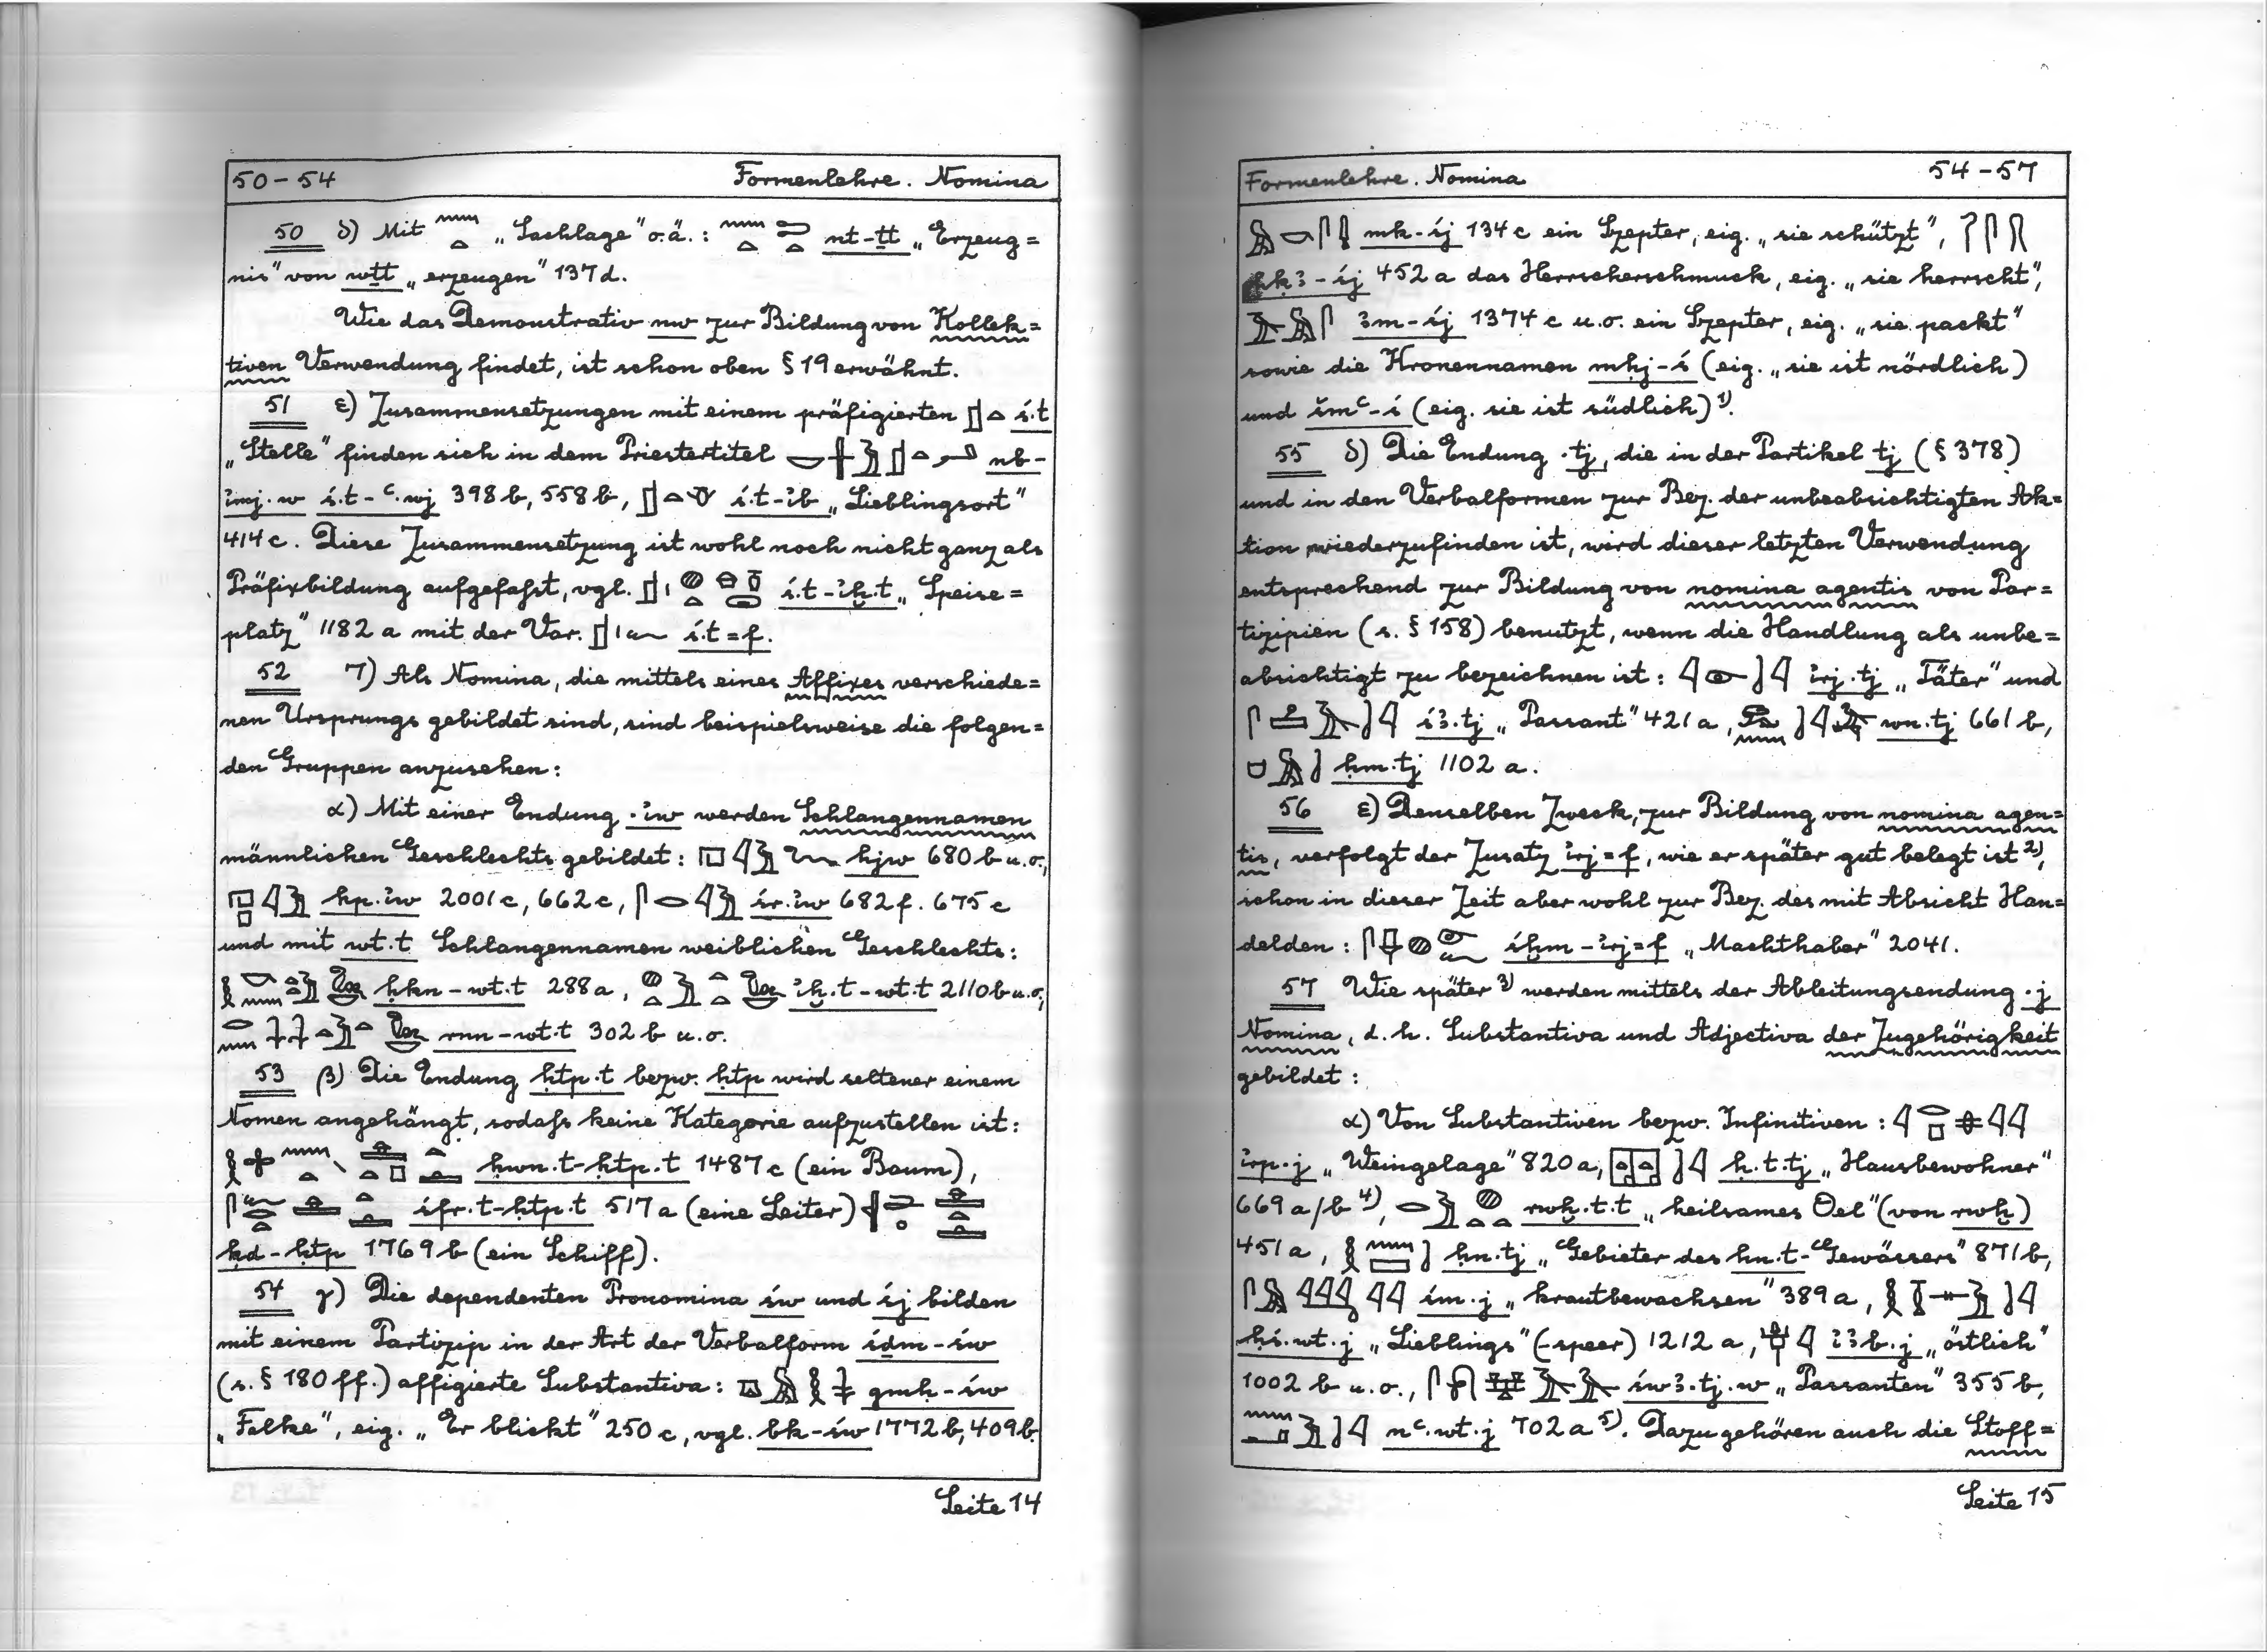 50 – 54 Formenlehre. Nomina
50 δ) Mit 𓈖𓏏 „Sachlage" o.ä.: 𓈖𓏏𓍿𓏏 nt-ṯt „Erzeug=
nis" von wṯṯ „erzeugen" 137 d.
Wie das Demonstrativ nw zur Bildung von Kollek=
tiven Verwendung findet, ist schon oben § 19 erwähnt.
51 ε) Zusammensetzungen mit einem präfigierten 𓊨𓏏 ś.t
„Stelle" finden sich in dem Priestertitel 𓎟𓏶𓅱𓊨𓏏𓂝 nb-
ỉmj.w ś.t-ꜥ.wj 398 b, 558 b, 𓊨𓏏𓄣 ś.t-ỉb „Lieblingsort"
414 c. Diese Zusammensetzung ist wohl noch nicht ganz als
Präfixbildung aufgefaßt, vgl. ś.t-ỉḫ.t „Speise=
platz" 1182 a mit der Var. 𓊨𓏤𓆑 ś.t=f.
52 7) Als Nomina, die mittels eines Affixes verschiede=
nen Ursprungs gebildet sind, sind beispielsweise die folgen=
den Gruppen anzusehen:
α) Mit einer Endung .ỉw werden Schlangennamen
männlichen Geschlechts gebildet: 𓉔𓇋𓅱𓆙 hjw 680 b u.o.,
𓉔𓊪𓇋𓅱 hp.ỉw 2001 c, 662 c, 𓋴𓂋𓇋𓅱 śr.ỉw 682 f. 675 c
und mit wt.t Schlangennamen weiblichen Geschlechts:
ḥkn-wt.t 288 a, ỉḫ.t-wt.t 2110 b u.o.,
rnn-wt.t 302 b u.o.
53 β) Die Endung ḥtp.t bezw. ḥtp wird seltener einem
Nomen angehängt, sodaß keine Kategorie aufzustellen ist:
ḥwn.t-ḥtp.t 1487 c (ein Baum),
śfr.t-ḥtp.t 517 a (eine Leiter)
ḳd-ḥtp 1769 b (ein Schiff).
54 γ) Die dependenten Pronomina św und śj bilden
mit einem Partizip in der Art der Verbalform śḏm-św
(s. § 180 ff.) affigierte Substantiva: 𓎼𓅓𓎛𓇓 gmḥ-św
„Falke", eig. „Er blickt" 250 c, vgl. bk-św 1772 b, 409 b.
Seite 14
Formenlehre. Nomina 54 – 57
𓅓𓎡𓋴𓇋 mk-śj 134 c ein Szepter, eig. „sie schützt", 𓋾𓋴
ḥḳꜣ-śj 452 a das Herrscherschmuck, eig. „sie herrscht",
𓄿𓅓𓋴 ꜣm-śj 1374 c u.o. ein Szepter, eig. „sie packt"
sowie die Kronennamen mḥj-ś (eig. „sie ist nördlich)
und šmꜥ-ś (eig. sie ist südlich)¹⁾.
55 δ) Die Endung .tj, die in der Partikel tj (§ 378)
und in den Verbalformen zur Bez. der unbeabsichtigten Ak=
tion wiederzufinden ist, wird dieser letzten Verwendung
entsprechend zur Bildung von nomina agentis von Par=
tizipien (s. § 158) benutzt, wenn die Handlung als unbe=
absichtigt zu bezeichnen ist: 𓇋𓁹𓍘𓇋 ỉrj.tj „Täter" und
śꜣ.tj „Passant" 421 a, wn.tj 661 b,
ḥm.tj 1102 a.
56 ε) Denselben Zweck, zur Bildung von nomina agen=
tis, verfolgt der Zusatz ỉrj=f, wie er später gut belegt ist ²⁾,
schon in dieser Zeit aber wohl zur Bez. des mit Absicht Han=
delden: śḫm-ỉrj=f „Machthaber" 2041.
57 Wie später ³⁾ werden mittels der Ableitungsendung .j
Nomina, d.h. Substantiva und Adjectiva der Zugehörigkeit
gebildet:
α) Von Substantiven bezw. Infinitiven:
ỉrp.j „Weingelage" 820 a, ḥ.t.tj „Hausbewohner"
669 a/b ⁴⁾, rwḫ.t.t „heilsames Oel" (von rwḫ)
451 a, ḥn.tj „Gebieter des ḥn.t-Gewässers" 871 b,
śm.j „krautbewachsen" 389 a,
ḥś.wt.j „Lieblings" (-speer) 1212 a, ỉꜣb.j „östlich"
1002 b u.o., śwꜣ.tj.w „Passanten" 355 b,
nꜥ.wt.j 702 a ⁵⁾. Dazu gehören auch die Stoff=
Seite 15